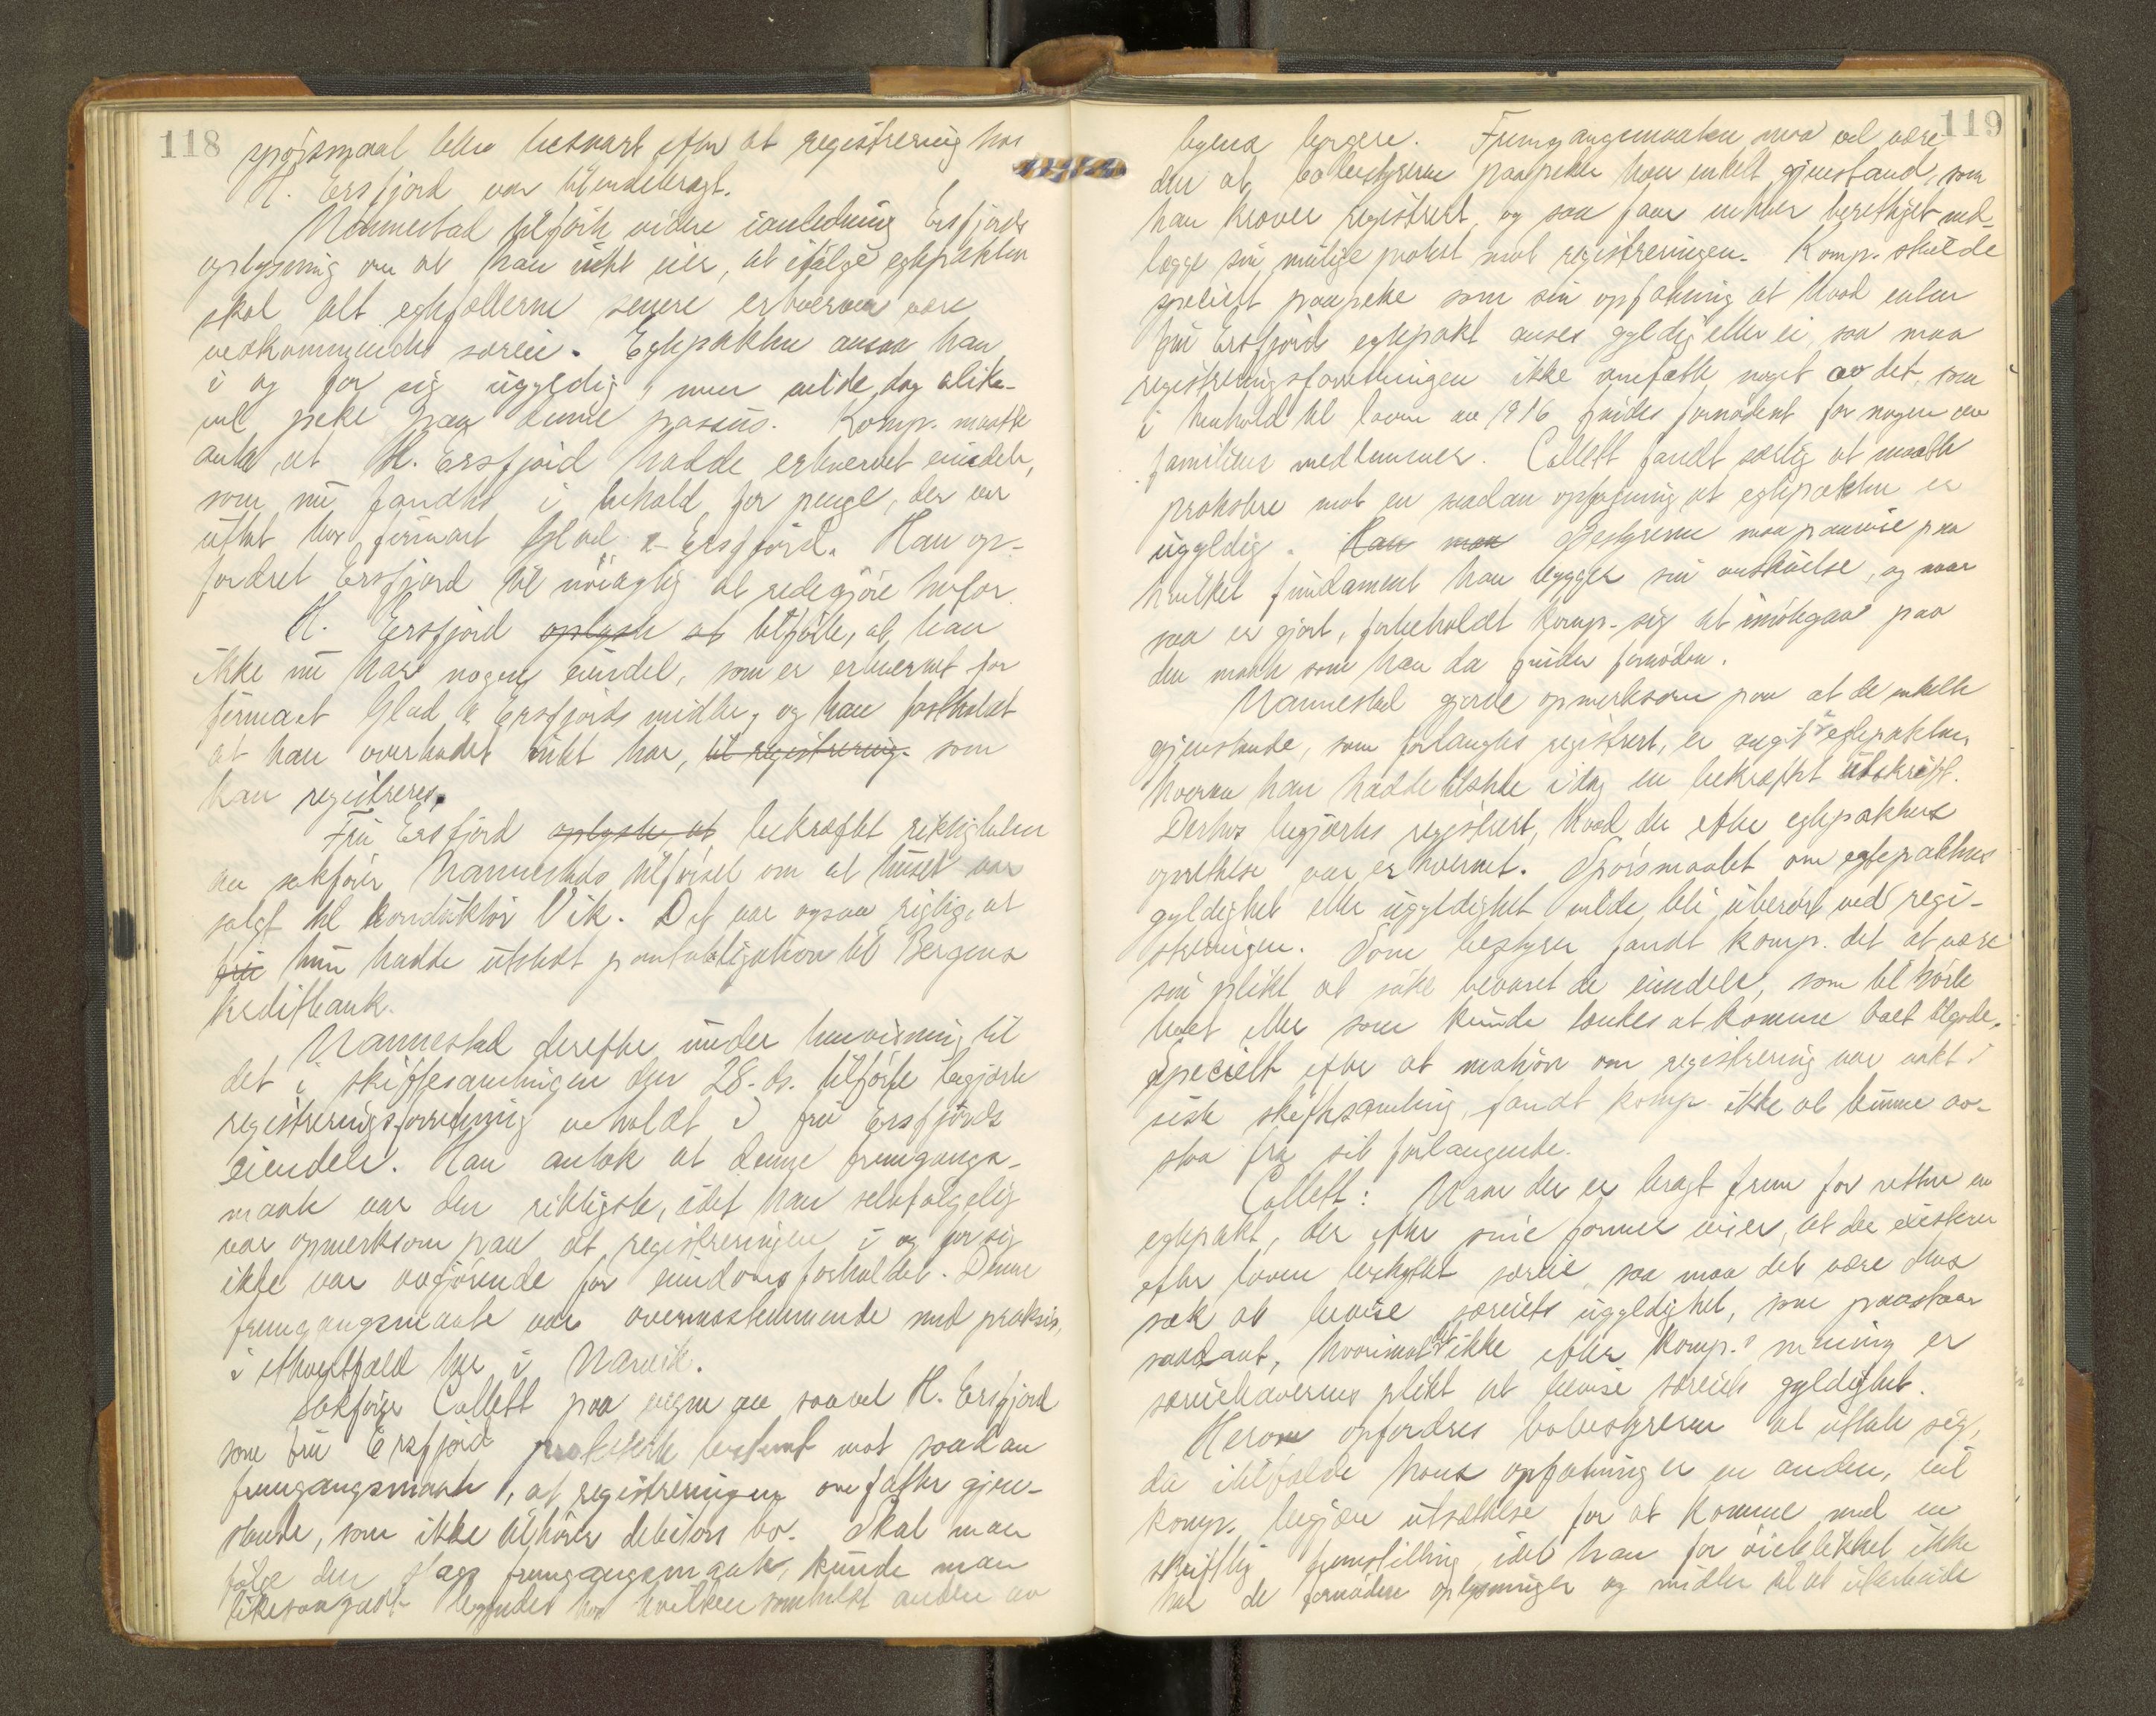 118
spørsmaal blev besvart efter at registrering hos
H. Ersfjord var tilendebragt.
Nannestad tilførte videre i anledning Ersfjords
oplysning om at han intet eier, at ifølge egtepakten
skal alt egtefællerne senere erhverver være
vedkommendes særeie. Egtepakten ansaa han
i og for sig ugyldig, men vilde dog alike-
vel peke paa denne passus. Komp. maatte
anta, at H. Ersfjord hadde erhvervet eiendele,
som nu fandtes i behold for penge, der var
uttat hos firmaet Glad & Ersfjord. Han op-
fordret Ersfjord til nøiagtig at redegjøre herfor.
H. Ersfjord oplyste at tilførte, at han
ikke nu har nogen eiendel, som er erhvervet for
firmaet Glad & Ersfjords midler, og han fastholdt
at han overhodet intet har, til registrering som
kan registreres.
Fru Ersfjord oplyste at bekræftet riktigheten
av sakfører Nannestads tilførsel om at huset var
solgt til konduktør Vik. Det var ogsaa rigtig, at
fru hun hadde utstedt pantobligation til Bergens
Kreditbank.
Nannestad derefter under henvisning til
det i skiftesamlingen den 28. ds. tilførte begjærte
registreringsforretning avholdt i fru Ersfjords
eiendele. Han antok at denne fremgangs-
maate var den riktigste, idet han selvfølgelig
var opmerksom paa at registreringen i og for sig
ikke var avgjørende for eiendomsforholdet. Denne
fremgangsmaate var overensstemmende med praksis,
i ethvertfald her i Narvik.
Sakfører Collett paa vegne av saavel H. Ersfjord
som fru Ersfjord protesterte bestemt mot saadan
fremgangsmaate, at registreringen omfatter gjen-
stande, som ikke tilhører debitors bo. Skal man
følge den slags fremgangsmaate, kunde man
likesaagodt begynde hos hvilkensomhelst anden av
119
byens borgere. Fremgangsmaaten maa vel være
den at bobestyreren paapeker hver enkelt gjenstand, som
han krever registrert, og saa faar enhver berettiget ned-
lægge sin mulige protest mot registreringen. Komp. skulde
specielt paapeke som sin opfatning at hvad enten
fru Ersfjords egtepakt anses gyldig eller ei, saa maa
registreringsforretningen ikke omfatte noget av det, som
i henhold til loven av 1916 findes fornødent for nogen av
familiens medlemmer. Collett fandt særlig at maatte
protestere mot en saadan opfatning at egtepakten er
ugyldig. Han maa Bestyreren maa paavise paa
hvilket fundament han bygger sin anskuelse, og naar
saa er gjort, forbeholdt komp. sig at imøtegaa paa
den maate som han da finder fornøden.
Nannestad gjorde opmerksom paa at de enkelte
gjenstande, som forlangtes registrert, er angit i egtepakten,
hvorav han hadde tilstede idag en bekræftet utskrift.
Derhos begjærtes registrert, hvad der efter egtepaktens
oprettelse var erhvervet. Spørsmaalet om egtepaktens
gyldighet eller ugyldighet vilde bli uberørt ved regi-
streringen. Som bestyrer fandt komp. det at være
sin plikt at søke bevaret de eiendele, som tilhørte
boet eller som kunde tænkes at komme boet tilgode.
Specielt efter at motion om registrering var vakt i
siste skiftesamling, fandt komp. ikke at kunne av-
staa fra sit forlangende.
Collett: Naar der er bragt frem for retten en
egtepakt, der efter sine former viser, at der existerer
efter loven beskyttet særeie, saa maa det være dens
sak at bevise særeiets ugyldighet, som paastaar
saadant, hvorimot det ikke efter komp.s mening er
særeiehaverens plikt at bevise særeiets gyldighet.
Herom opfordres bobestyreren at uttale sig,
da i tilfælde hans opfatning er en anden, vil
komp. begjære utsættelse for at komme med en
skriftlig fremstilling, idet han for øieblikket ikke
har de fornødne oplysninger og midler til at utarbeide